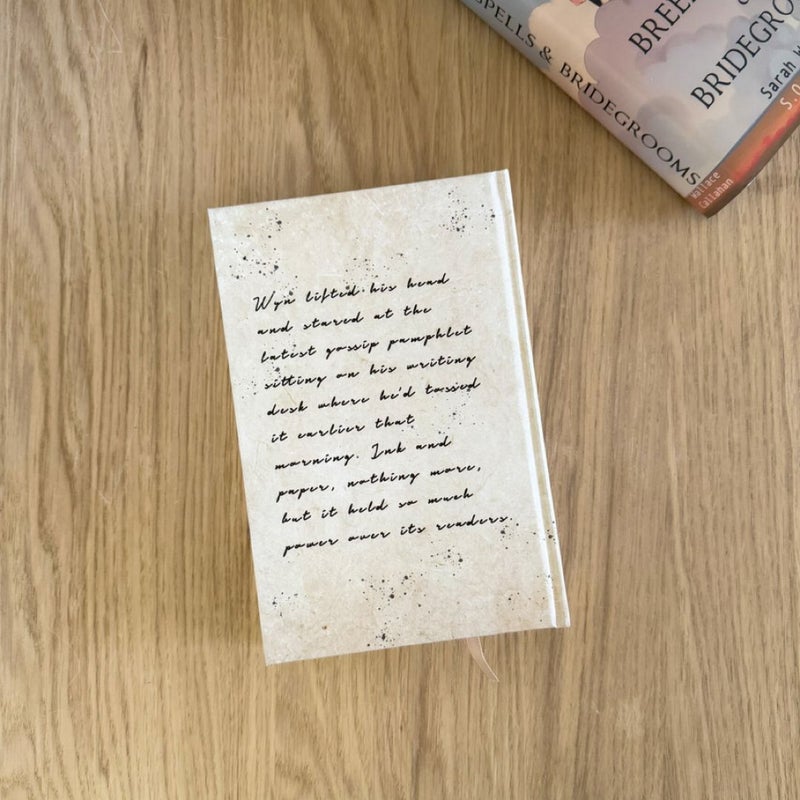 SPELLS & BRIDEGROOMS
Wallace
Callahan
BREE
BRIDEGRO
Sarah W
S.O
Wyn lifted his head
and stared at the
latest gossip pamphlet
sitting on his writing
desk where he'd tossed
it earlier that
morning. Ink and
paper, nothing more,
but it held so much
power over its readers.